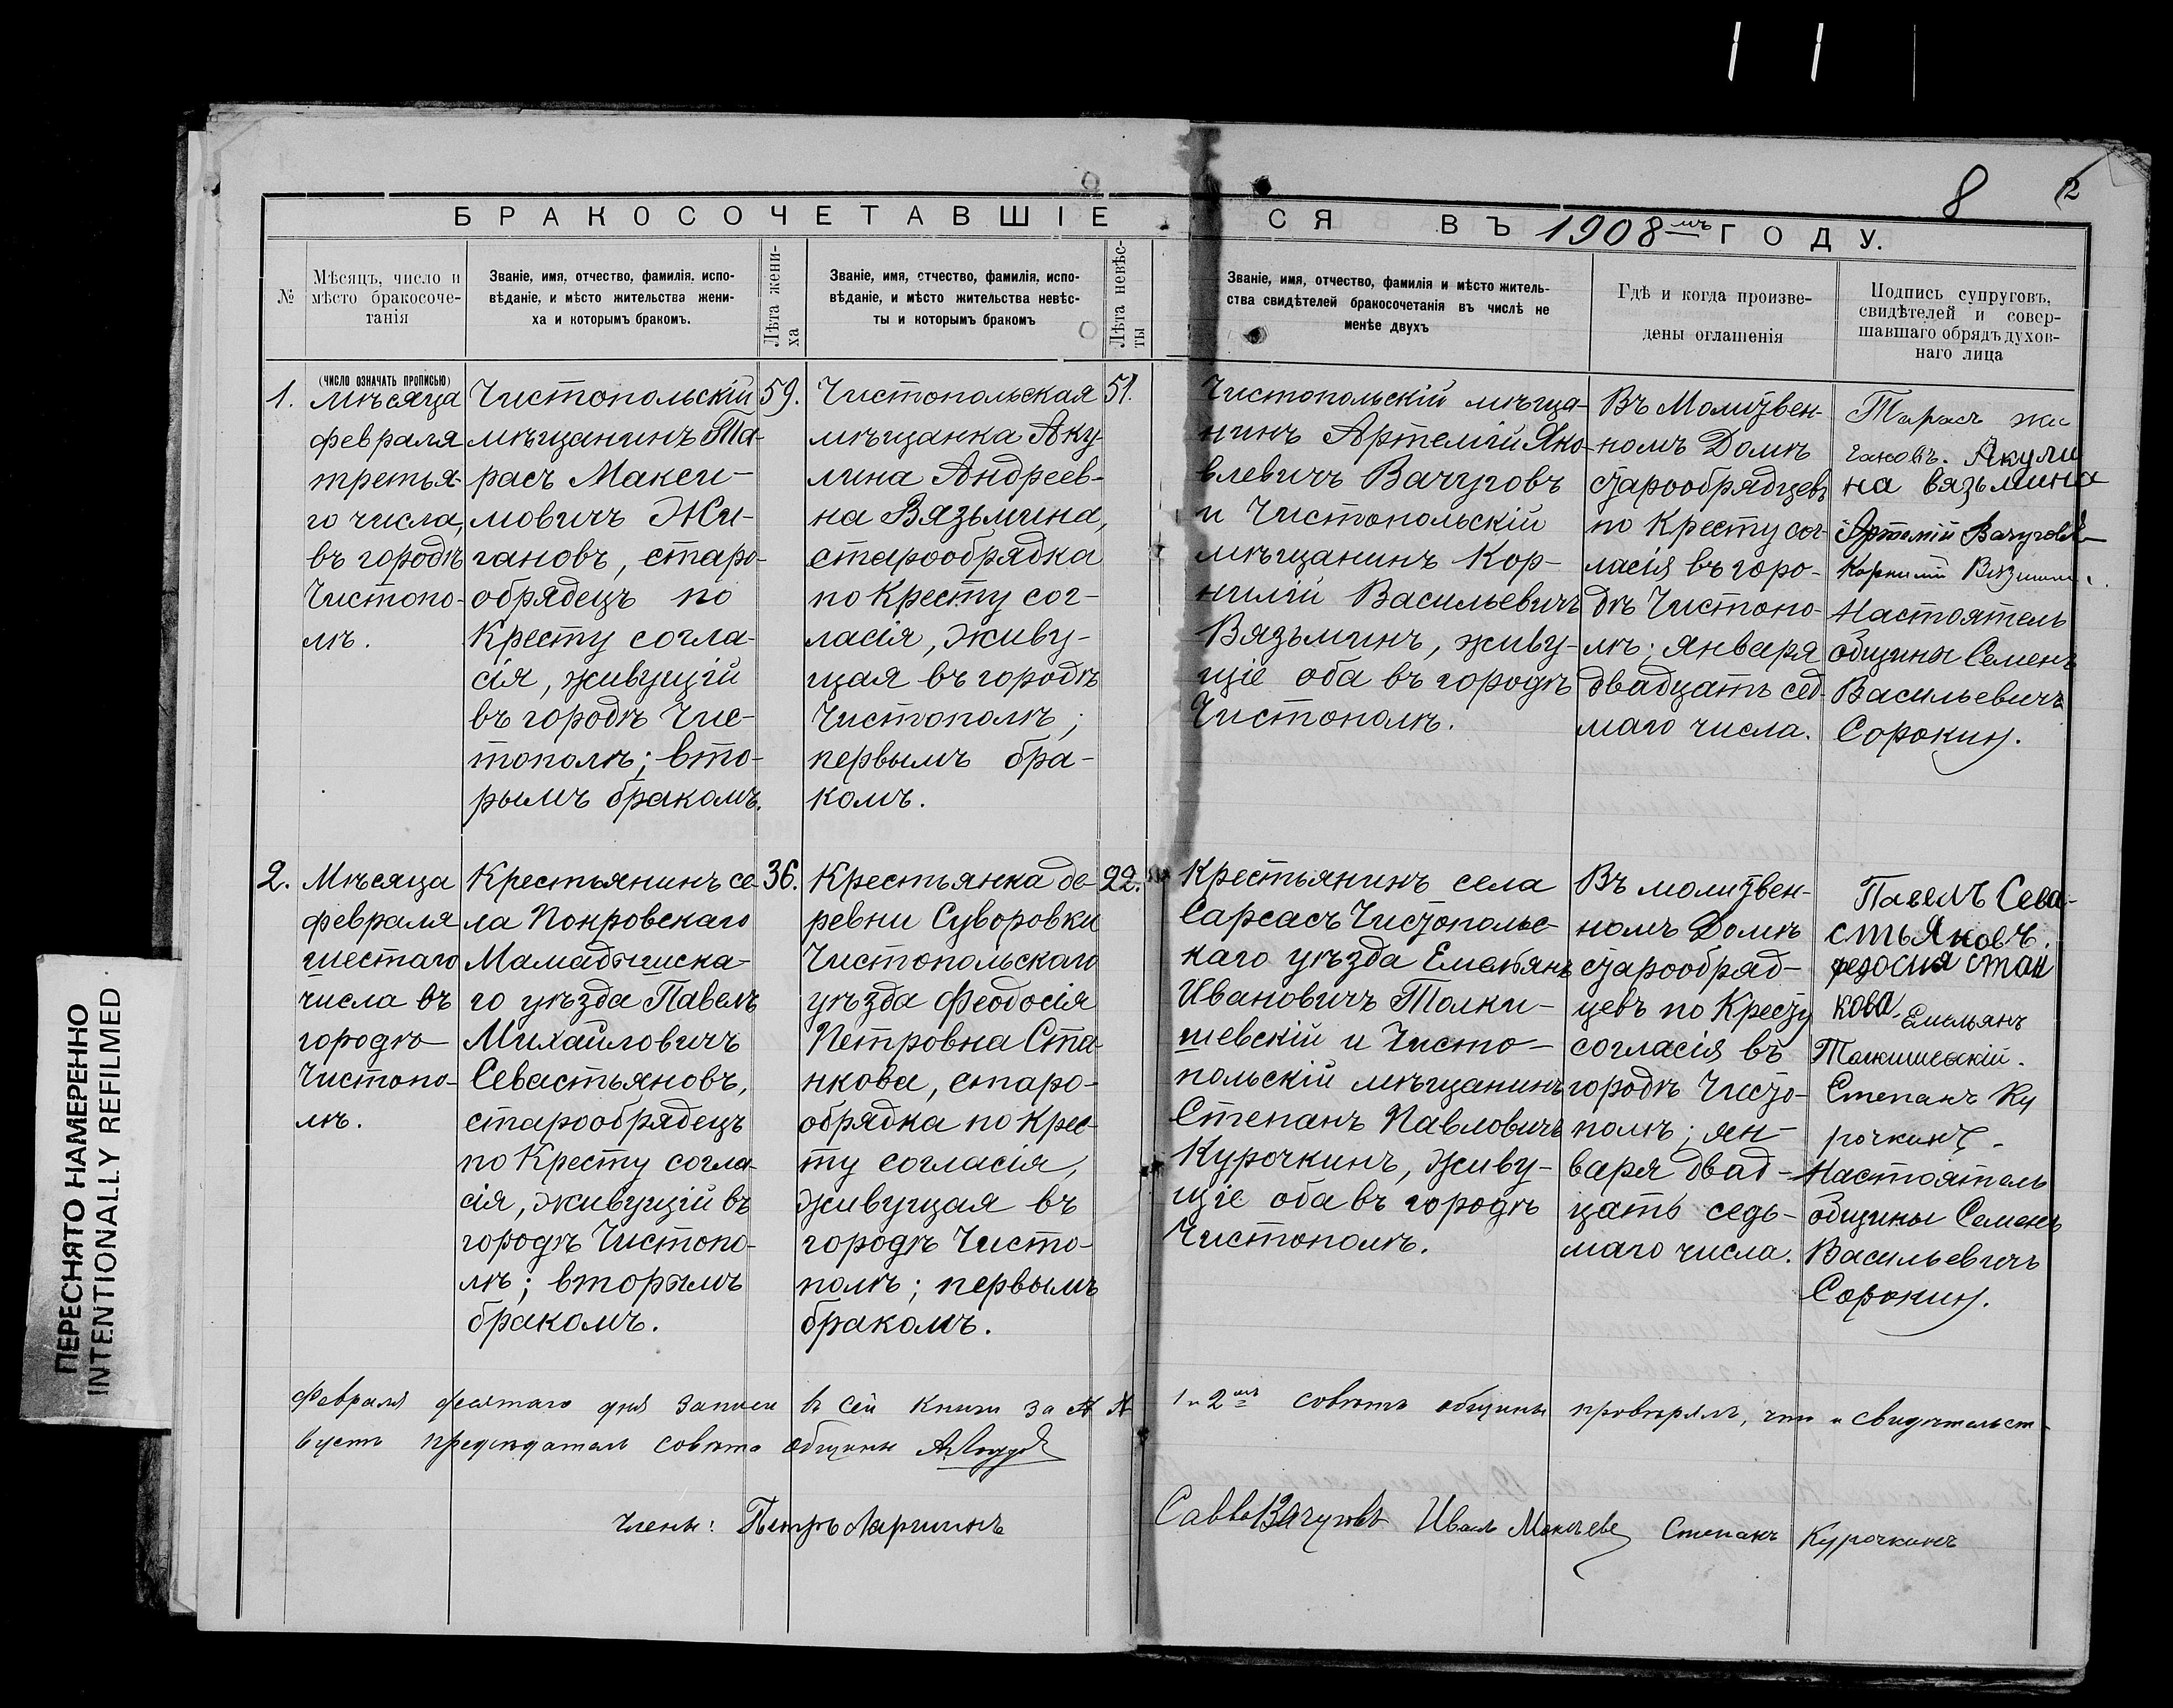 8 2
БРАКОСОЧЕТАВШІЕСЯ ВЪ 1908мъ ГОДУ.
№
Мѣсяцъ, число и
мѣсто бракосоче-
танія
Званіе, имя, отчество, фамилія, испо-
вѣданіе, и мѣсто жительства жени-
ха и которымъ бракомъ.
Лѣта жени-
ха
Званіе, имя, отчество, фамилія, испо-
вѣданіе, и мѣсто жительства невѣс-
ты и которымъ бракомъ
Лѣта невѣс-
ты
Званіе, имя, отчество, фамилія и мѣсто житель-
ства свидѣтелей бракосочетанія въ числѣ не
менѣе двухъ
Гдѣ и когда произве-
дены оглашенія
Подпись супруговъ,
свидѣтелей и совер-
шавшаго обрядъ духов-
наго лица
(ЧИСЛО ОЗНАЧАТЬ ПРОПИСЬЮ)
1.
Мѣсяца
февраля
третья-
го числа,
въ городѣ
Чистопо-
лѣ.
Чистопольскій
мѣщанинъ Та-
расъ Макси-
мовичъ Жи-
гановъ, старо-
обрядецъ по
Кресту согла-
сія, живущій
въ городѣ Чис-
тополѣ; вто-
рымъ бракомъ.
59.
Чистопольская
мѣщанка Аку-
лина Андреев-
на Вязьмина,
старообрядка
по Кресту сог-
ласія, живу-
щая въ городѣ
Чистополѣ;
первымъ бра-
комъ.
51.
Чистопольскій мѣща-
нинъ Артемій Яко-
влевичъ Вачуговъ
и Чистопольскій
мѣщанинъ Кор-
нилій Васильевичъ
Вязьминъ, живу-
щіе оба въ городѣ
Чистополѣ.
Въ Молитвен-
номъ Домѣ
старообрядцевъ
по Кресту сог-
ласія въ горо-
дѣ Чистопо-
лѣ; января
двадцать сед-
маго числа.
Тарасъ Жи
гановъ. Акули
на Вязьмина
Артемій Вачуговъ
Корнилій
Настоятель
общины Семенъ
Васильевичъ
Сорокин.
2.
Мѣсяца
февраля
шестаго
числа въ
городѣ
Чистопо-
лѣ.
Крестьянинъ се-
ла Покровскаго
Мамадышска-
го уѣзда Павелъ
Михайловичъ
Севастьяновъ,
старообрядецъ
по Кресту согла-
сія, живущій въ
городѣ Чистопо-
лѣ; вторымъ
бракомъ.
36.
Крестьянка де-
ревни Суворовки
Чистопольскаго
уѣзда Феодосія
Петровна Ста-
нкова, старо-
обрядка по Крес-
ту согласія,
живущая въ
городѣ Чисто-
полѣ; первымъ
бракомъ.
22.
Крестьянинъ села
Сарсасъ Чистопольс-
каго уѣзда Емельянъ
Ивановичъ Толки-
шевскій и Чисто-
польскій мѣщанинъ
Степанъ Павловичъ
Курочкинъ, живу-
щіе оба въ городѣ
Чистополѣ.
Въ молитвен-
номъ Домѣ
старообряд-
цевъ по Кресту
согласія въ
городѣ Чисто-
полѣ; ян-
варя двад-
цать седь-
маго числа.
Павелъ Сева-
стьяновъ.
федосия стан
кова. Емельянъ
Толкишевскій.
Степанъ Ку
рочкинъ.
Настоятель
общины Семенъ
Васильевичъ
Сорокин.
Февраля десятаго дня записи въ сей книги за №№ 1 и 2мъ совѣтъ общины провѣрялъ, что и свидѣтельст-
вуетъ предсѣдатель совѣта общины
члены: Петръ Ларшинъ Савва Вачуговъ Иванъ Степанъ Курочкинъ
ПЕРЕСНЯТО НАМЕРЕННО
INTENTIONALLY REFILMED